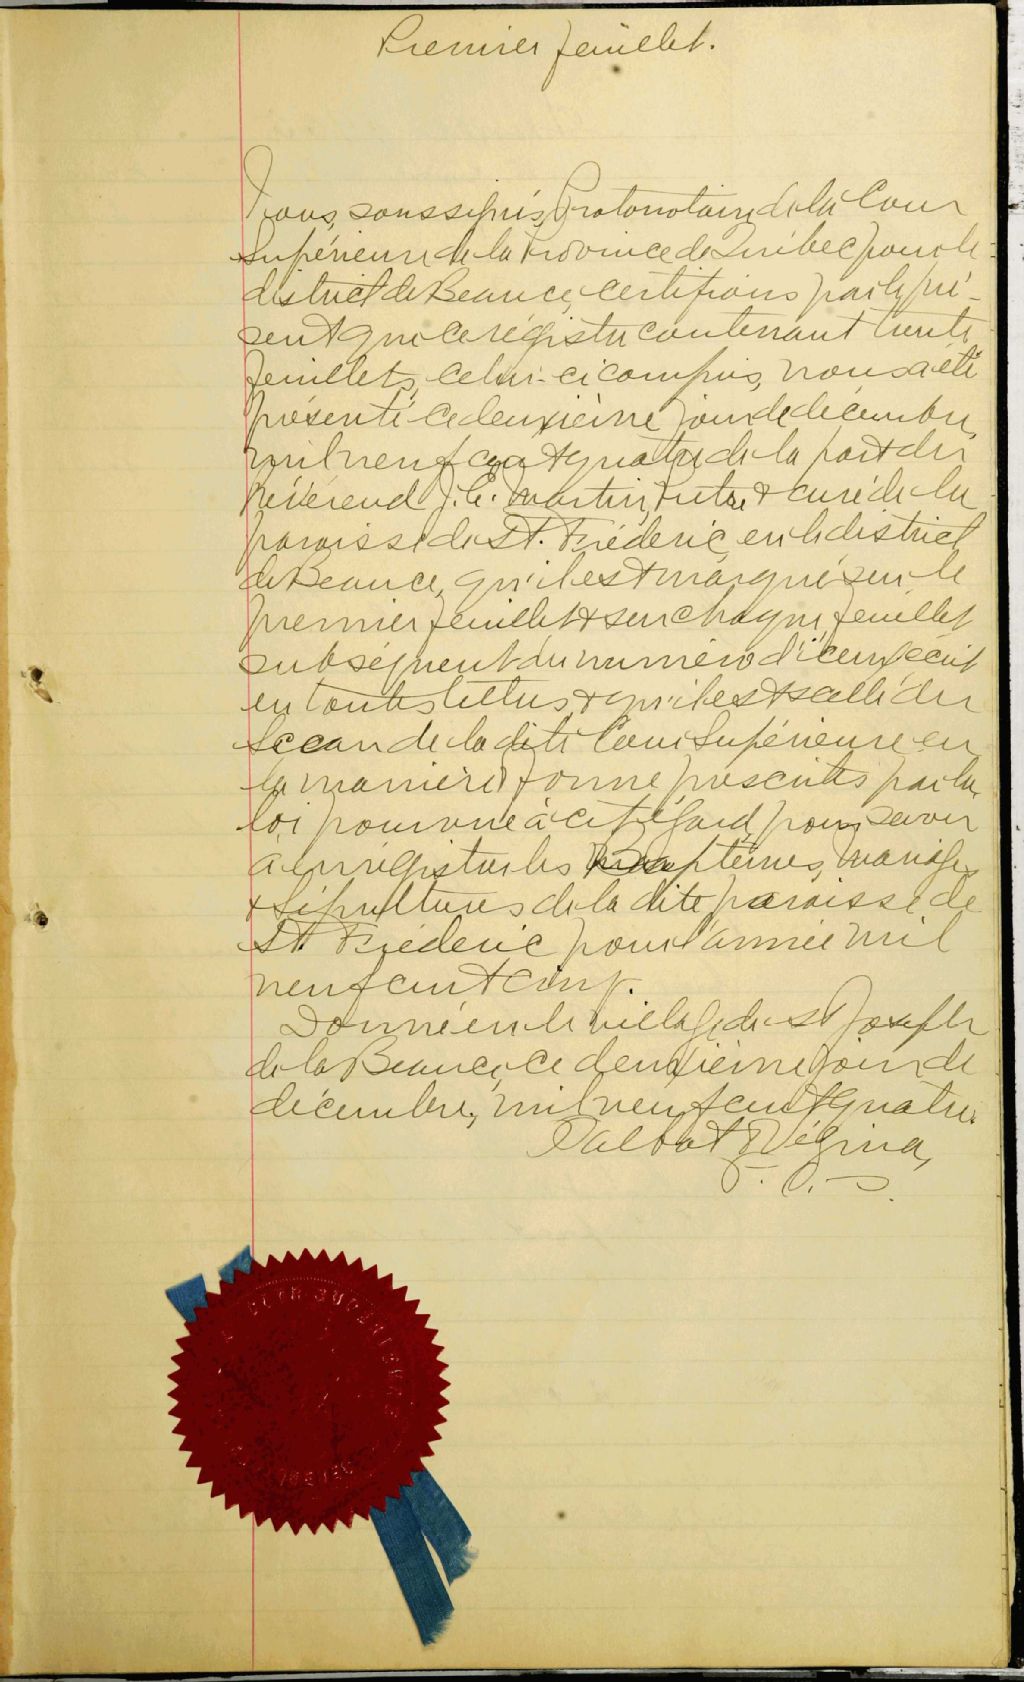 Premier feuillet.
Nous, soussignés, Protonotaire de la Cour
Supérieure de la Province de Québec pour le
district de Beauce, certifions par le pré-
sent que ce régistre contenant trente
feuillets, celui-ci compris, nous a été
présenté ce deuxième jour de décembre,
mil neuf cent quatre de la part du
Révérend J. E. Martin, Ptre & curé de la
paroisse de St. Frédéric, en le district
de Beauce, qu'il est marqué sur le
premier feuillet & sur chaque feuillet
subséquent du numéro d'iceux écrit
en toutes lettres, & qu'il est scellé du
Sceau de la dite Cour Supérieure en
la manière & forme prescrites par la
loi pourvue à cet égard, pour servir
à enrégistrer les Baptêmes, Mariages
& Sépultures de la dite paroisse de
St. Frédéric pour l'année mil
neuf cent cinq.
Donné en le village de St Joseph
de la Beauce, ce deuxième jour de
décembre, mil neuf cent quatre.
Talbot & Vézina,
P. C. S.
COUR SUPERIEURE